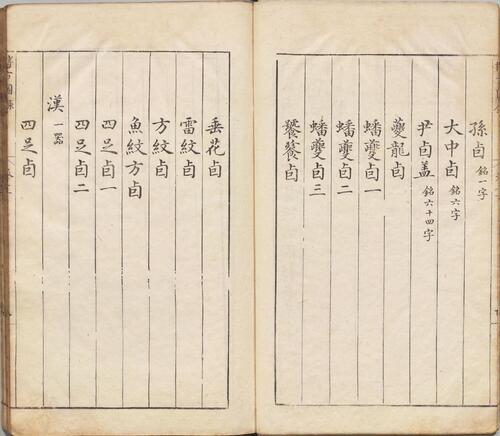 孫卣 銘一字
大中卣 銘六字
尹卣蓋 銘六十四字
夔龍卣
蟠夔卣一
蟠夔卣二
蟠夔卣三
饕餮卣
垂花卣
雷紋卣
方紋卣
魚紋方卣
四足卣一
四足卣二
漢 一器
四足卣